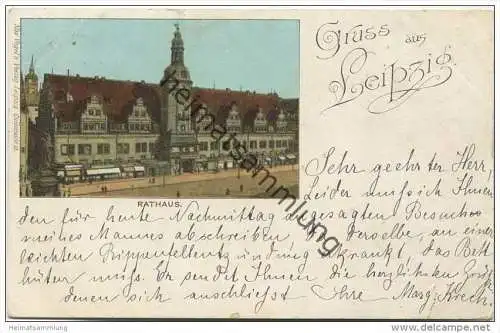 Gruss aus
Leipzig.
RATHAUS.
Sehr geehrter Herr,
Leider muss ich Ihnen
den für heute Nachmittag angesagten Besuch
meines Mannes abschreiben, Derselbe, an einer
leichten Grippe erkrankt, das Bett
hüten muss. Er sendet Ihnen die herzlichsten Grüße
denen sich anschliesst Ihre Marg.
heimatsammlung.de
© Heimatsammlung
www.heimatsammlung.de